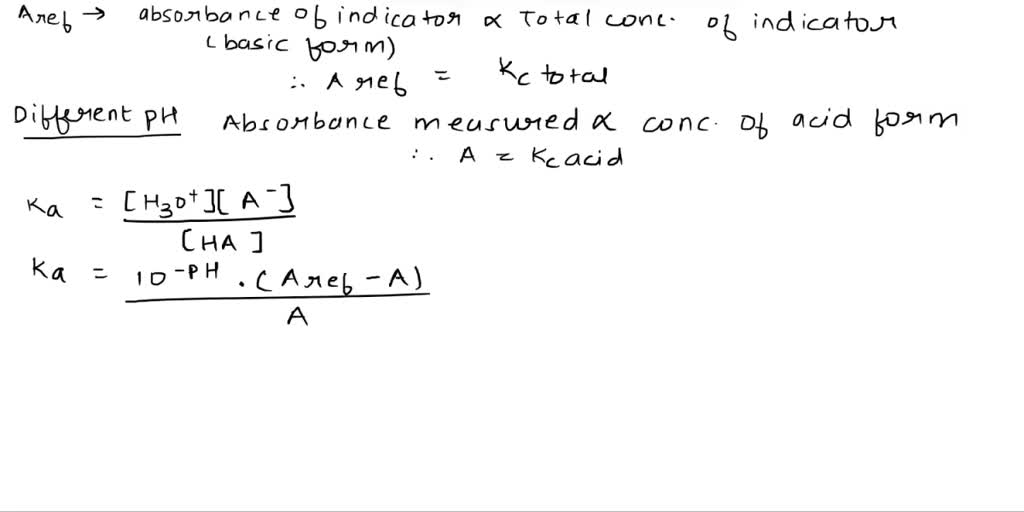 Aref → absorbance of indicator ∝ Total conc. of indicator
(basic form)
∴ Aref = Kc total
Different pH Absorbance measured ∝ conc. of acid form
∴ A = Kc acid
Ka = [H3O+][A-]
[HA]
Ka = 10-PH . (Aref - A)
A